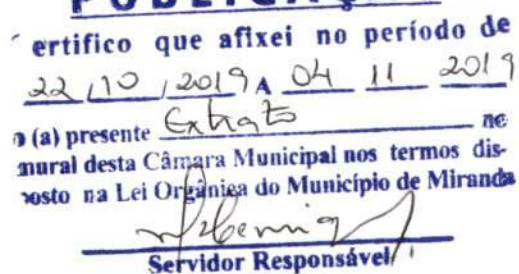 ertifico que afixei no período de
22/10/2019 A 04 11 2019
o (a) presente Extrato no
mural desta Câmara Municipal nos termos dis-
posto na Lei Orgânica do Município de Miranda
Servidor Responsável